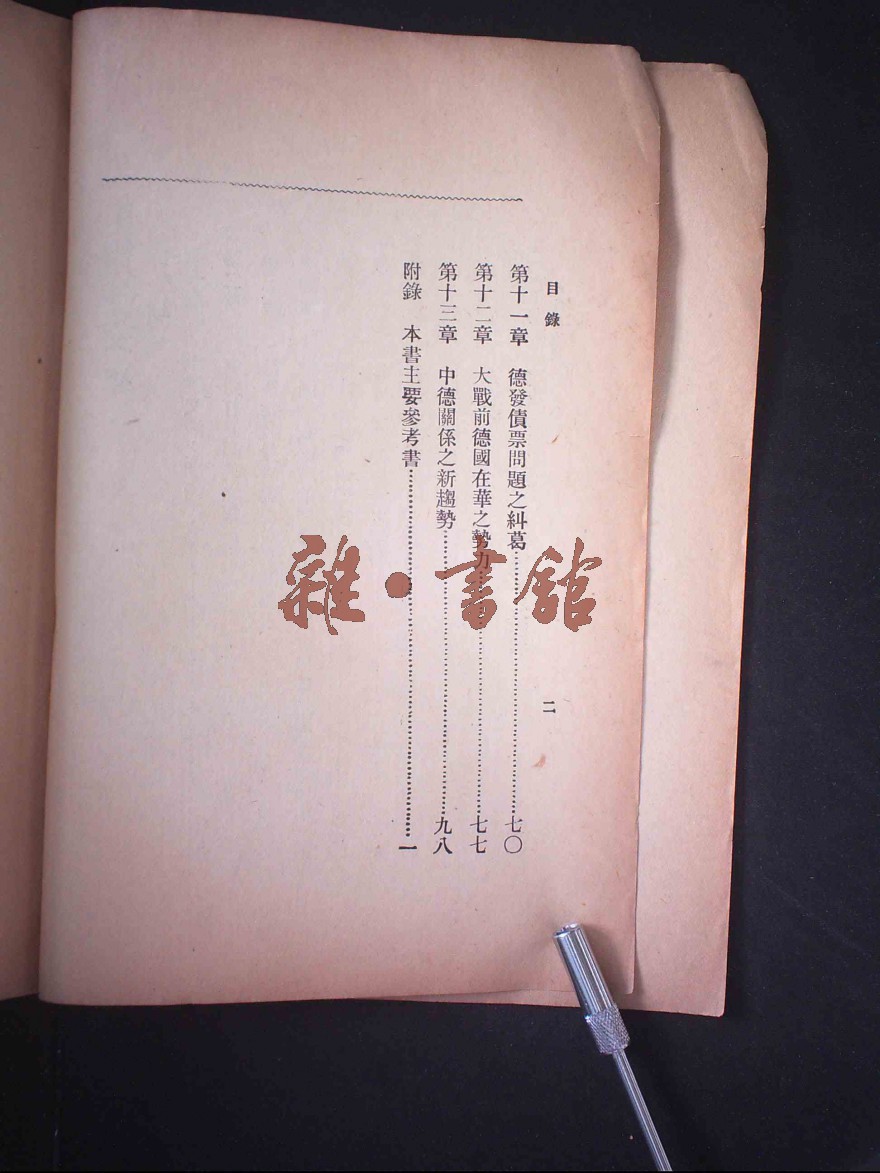 目錄
二
第十一章 德發債票問題之糾葛……七〇
第十二章 大戰前德國在華之勢力……七七
第十三章 中德關係之新趨勢……九八
附錄 本書主要參考書……一
雜·書館